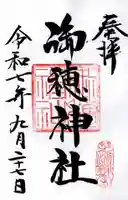 奉拝
御穂神社
令和七年九月二七日